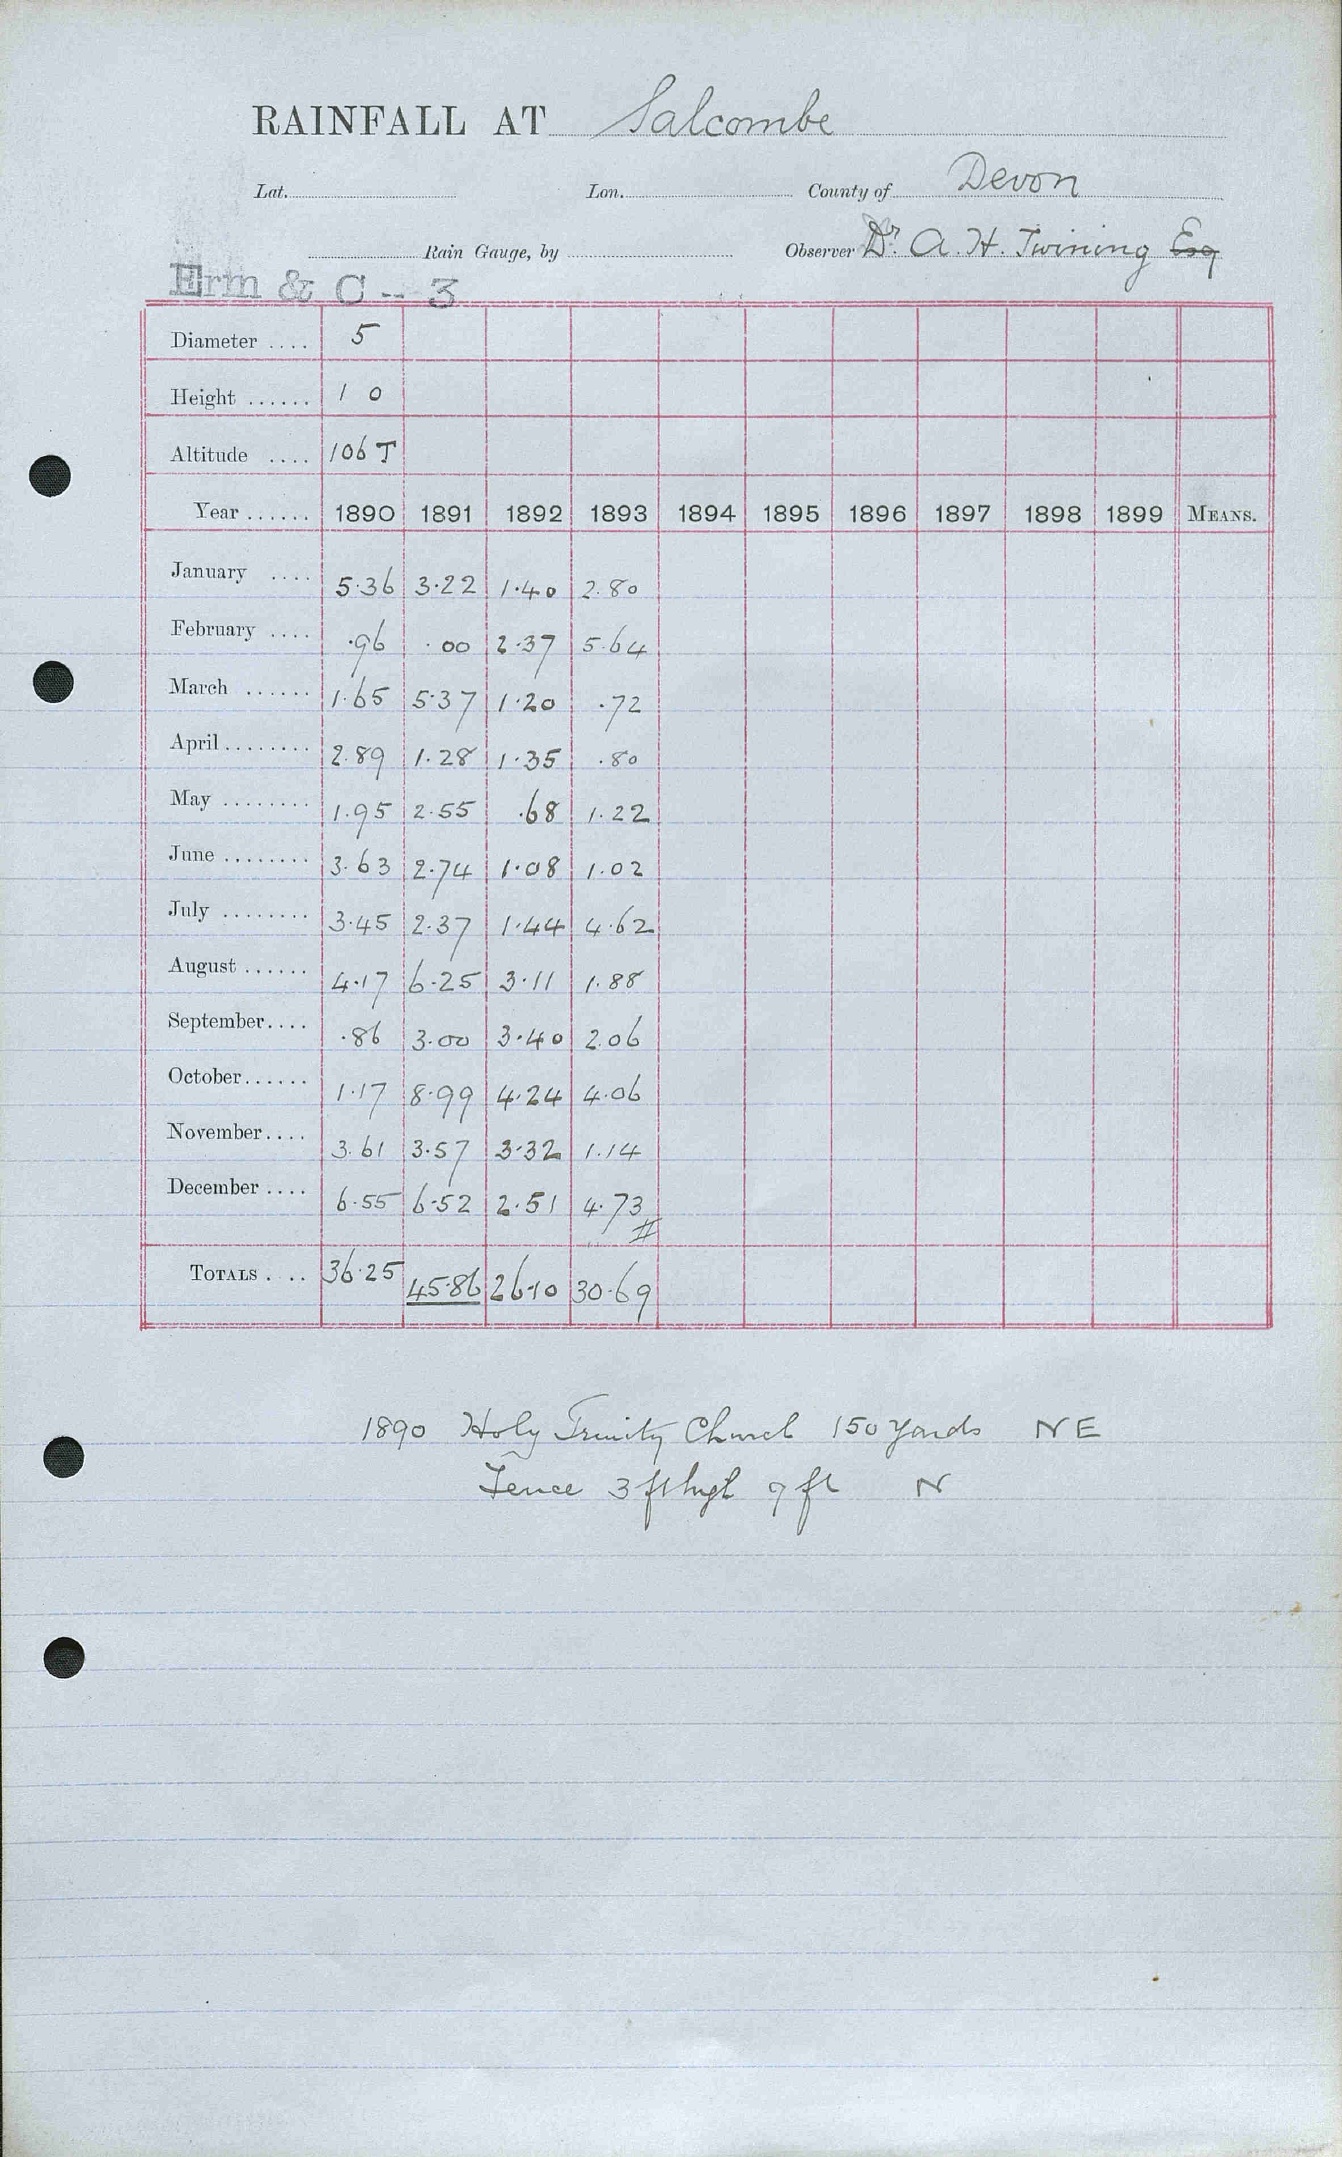 RAINFALL AT Salcombe
Lat. Lon. County of Devon
Rain Gauge, by Observer Dr. A. H. Twining Esq
Erm & C -- 3
Diameter .... 5
Height ...... 1 0
Altitude .... 106 T
Year ...... 1890 1891 1892 1893 1894 1895 1896 1897 1898 1899 MEANS.
January .... 5.36 3.22 1.40 2.80
February .... .96 .00 2.37 5.64
March ...... 1.65 5.37 1.20 .72
April ........ 2.89 1.28 1.35 .80
May ........ 1.95 2.55 .68 1.22
June ........ 3.63 2.74 1.08 1.02
July ........ 3.45 2.37 1.44 4.62
August ...... 4.17 6.25 3.11 1.88
September .... .86 3.00 3.40 2.06
October ...... 1.17 8.99 4.24 4.06
November .... 3.61 3.57 3.32 1.14
December .... 6.55 6.52 2.51 4.73
TOTALS . .. 36.25 45.86 26.10 30.69
1890 Holy Trinity Church 150 yards NE
Fence 3 ft high 9 ft N